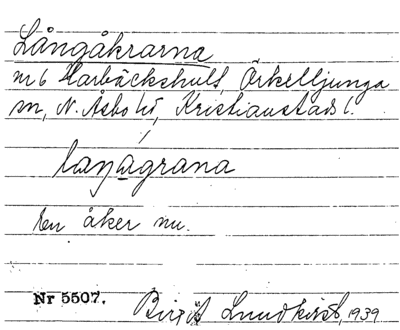 Långåkrarna
nr 6 Harbäckshult, Örkelljunga
sn, N. Åsbo hd, Kristianstads l.
laŋagrana
En åker nu.
Nr 5507. Birgit Lundkvist, 1939